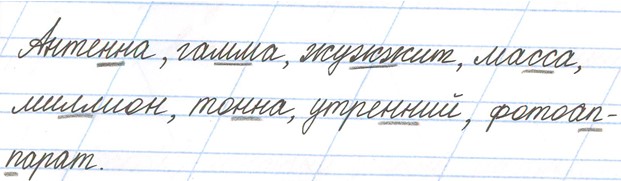 Антенна, гамма, жужжит, масса,
миллион, тонна, утренний, фотоап-
парат.